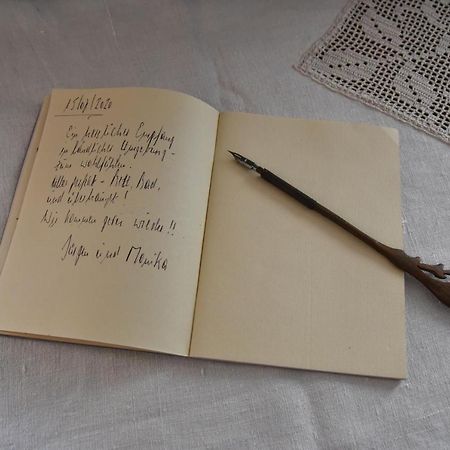 15/07/2020
Ein herzlicher Empfang
in ländlicher Umgebung -
zum wohlfühlen.
Alles perfekt - Bett Bad,
und überhaupt!
Wir kommen gerne wieder!!
Jürgen und Monika